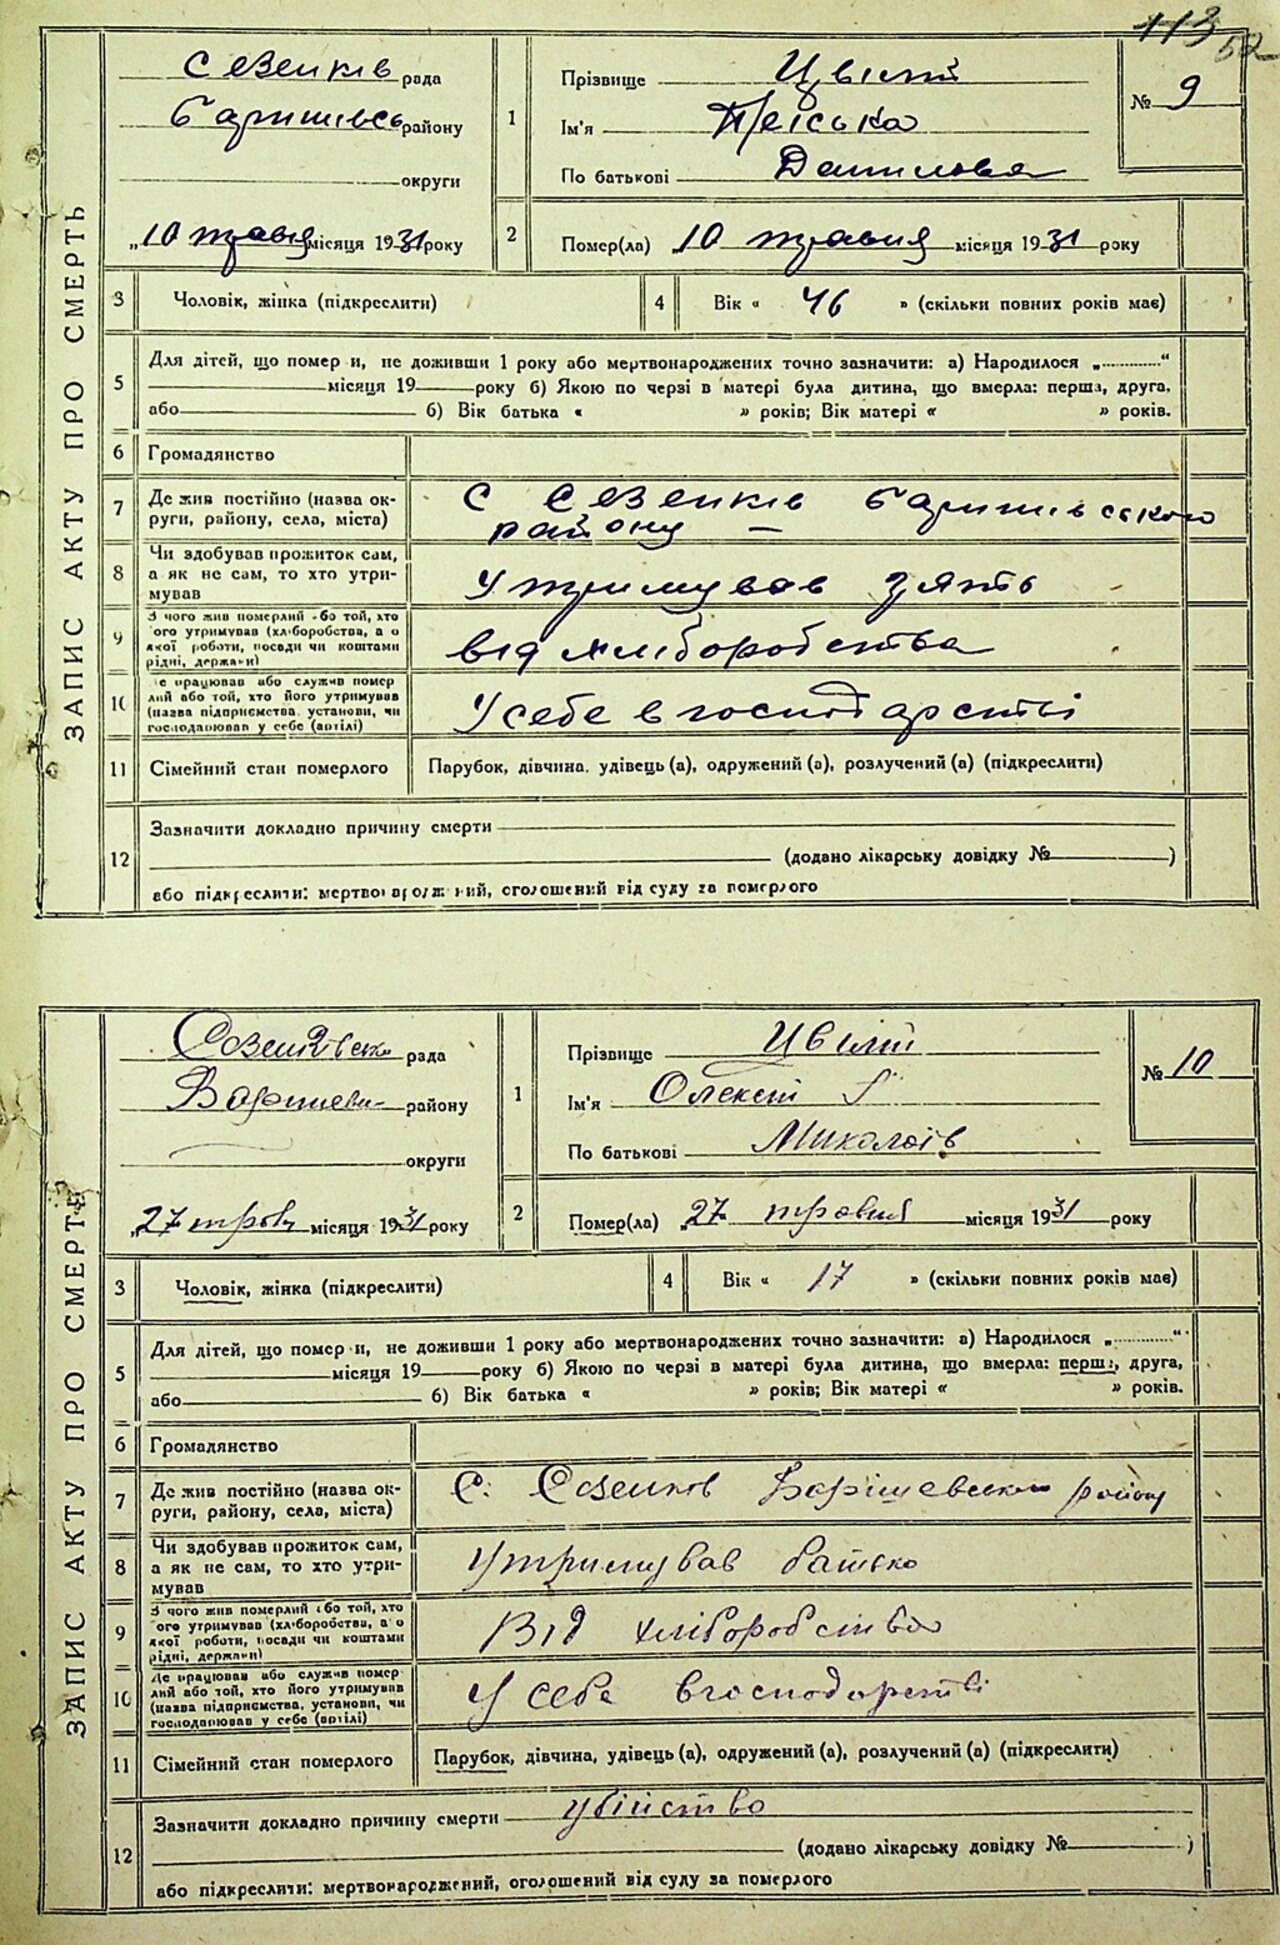 113
52
ЗАПИС АКТУ ПРО СМЕРТЬ
Сезенків рада
Баришівсь району
округи
„10 травня місяця 1931 року
1
Прізвище Цвіт
Ім'я
По батькові Данилова
№ 9
2
Помер(ла) „10 травня місяця 1931 року
3 Чоловік, жінка (підкреслити)
4 Вік « 46 » (скільки повних років має)
5
Для дітей, що помер и, не доживши 1 року або мертвонароджених точно зазначити: а) Народилося „ “
місяця 19 року б) Якою по черзі в матері була дитина, що вмерла: перша, друга,
або б) Вік батька « » років; Вік матері « » років.
6 Громадянство
7 Де жив постійно (назва ок-
руги, району, села, міста)
с Сезенків Баришівського
району —
8 Чи здобував прожиток сам,
а як не сам, то хто утри-
мував
Утримував зять
9 З чого жив померлий або той, хто
ого утримував (хліборобства, а о
якої роботи, посади чи коштами
рідні, держави)
від хліборобства
10 е працював або служив помер
лий або той, хто його утримував
(назва підприємства установи, чи
господарював у себе (артілі)
У себе в господарстві
11 Сімейний стан померлого
Парубок, дівчина, удівець (а), одружений (а), розлучений (а) (підкреслити)
12
Зазначити докладно причину смерти
(додано лікарську довідку № )
або підкреслити: мертвонароджений, оголошений від суду за померлого
ЗАПИС АКТУ ПРО СМЕРТЬ
рада
району
округи
„27 трав місяця 1931 року
1
Прізвище Цвіт
Ім'я Олексій
По батькові Миколаїв
№ 10
2
Помер(ла) „27 травня місяця 1931 року
3 Чоловік, жінка (підкреслити)
4 Вік « 17 » (скільки повних років має)
5
Для дітей, що помер и, не доживши 1 року або мертвонароджених точно зазначити: а) Народилося „ “
місяця 19 року б) Якою по черзі в матері була дитина, що вмерла: перша, друга,
або б) Вік батька « » років; Вік матері « » років.
6 Громадянство
7 Де жив постійно (назва ок-
руги, району, села, міста)
С. Сезенков Барішевського району
8 Чи здобував прожиток сам,
а як не сам, то хто утри-
мував
Утримував батько
9 З чого жив померлий або той, хто
ого утримував (хліборобства, а о
якої роботи, посади чи коштами
рідні, держави)
Від хліборобства
10 Де працював або служив помер
лий або той, хто його утримував
(назва підприємства, установи, чи
господарював у себе (артілі)
У себе в господарстві
11 Сімейний стан померлого
Парубок, дівчина, удівець (а), одружений (а), розлучений (а) (підкреслити)
12
Зазначити докладно причину смерти убійство
(додано лікарську довідку № )
або підкреслити: мертвонароджений, оголошений від суду за померлого